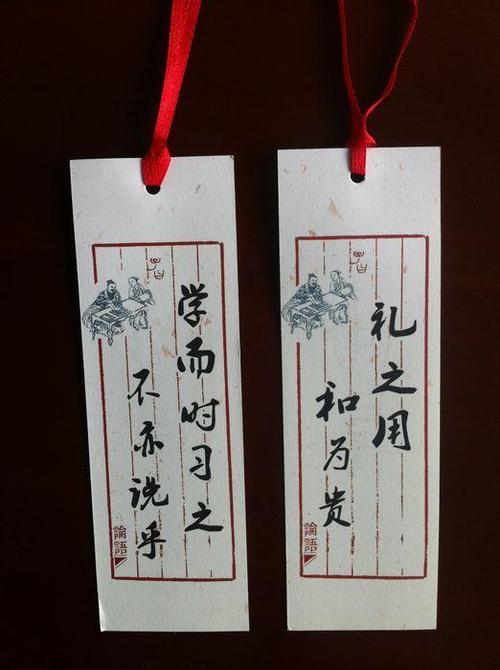 学而时习之
不亦说乎
論語
礼之用
和为贵
論語